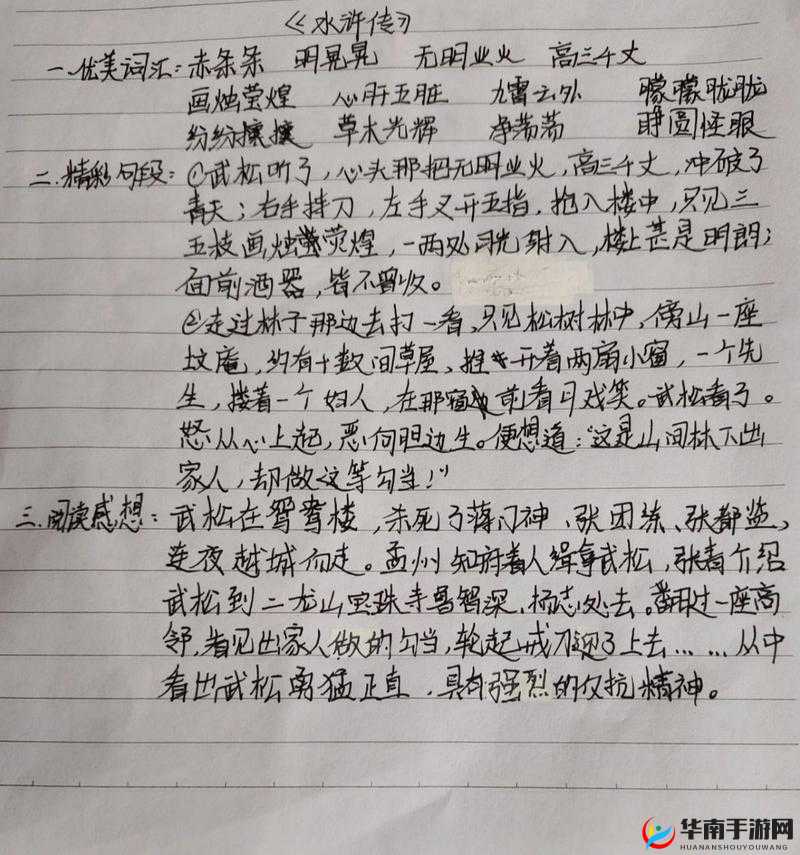 《水浒传》
一.优美词汇：赤条条 明晃晃 无明业火 高三千丈
画烛莹煌 心肝五脏 九霄云外 朦朦胧胧
纷纷攘攘 草木光辉 净荡荡 睁圆怪眼
二.精彩句段：①武松听了，心头那把无明业火，高三千丈，冲破了
青天；右手持刀，左手叉开五指，抢入楼中，只见三
五枝画烛荧煌，一两处月光射入，楼上甚是明朗；
面前酒器，皆不曾收。
②走过林子那边去打一看，只见松树林中，傍山一座
坟庵，约有十数间草屋，推开着两扇小窗，一个先
生，搂着一个妇人，在那窗前看月戏笑。武松看了。
怒从心上起，恶向胆边生。便想道：“这是山间林下出
家人，却做这等勾当！”
三.阅读感想：武松在鸳鸯楼，杀死了蒋门神、张团练、张都监，
连夜越城而走。孟州知府着人缉拿武松，张青介绍
武松到二龙山宝珠寺鲁智深、杨志处去。翻过一座高
岭，看见出家人做的勾当，轮起戒刀迎了上去……从中
看出武松勇猛正直，具有强烈的反抗精神。
华南手游网
HUANANSHOUYOUWANG